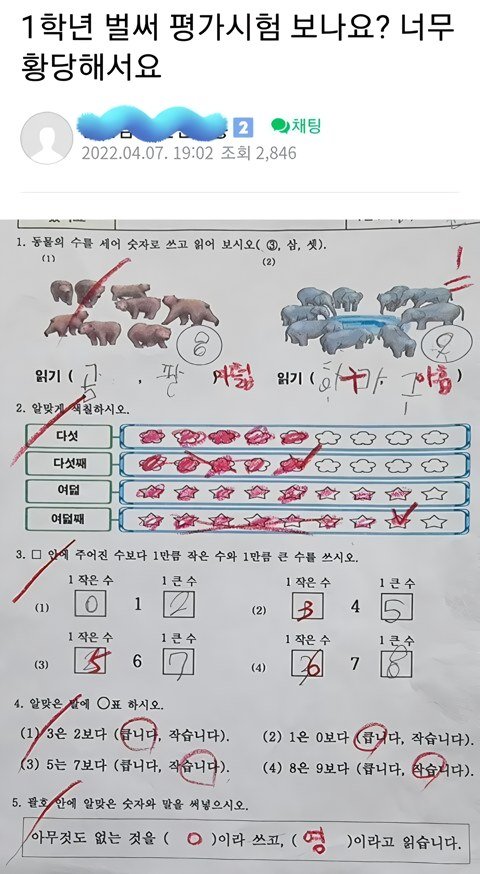 1학년 벌써 평가시험 보나요? 너무
황당해서요
2 채팅
2022.04.07. 19:02 조회 2,846
1. 동물의 수를 세어 숫자로 쓰고 읽어 보시오( ③, 삼, 셋).
(1) (2)
8 9
읽기 ( , 팔 여덟) 읽기 ( 아홉 )
2. 알맞게 색칠하시오.
다섯
다섯째
여덟
여덟째
3. □ 안에 주어진 수보다 1만큼 작은 수와 1만큼 큰 수를 쓰시오.
1 작은 수 1 큰 수 1 작은 수 1 큰 수
(1) 0 1 2 (2) 3 4 5
1 작은 수 1 큰 수 1 작은 수 1 큰 수
(3) 5 6 7 (4) 6 7 8
4. 알맞은 말에 ○표 하시오.
(1) 3은 2보다 (큽니다, 작습니다). (2) 1은 0보다 (큽니다, 작습니다).
(3) 5는 7보다 (큽니다, 작습니다). (4) 8은 9보다 (큽니다, 작습니다).
5. 괄호 안에 알맞은 숫자와 말을 써넣으시오.
아무것도 없는 것을 ( 0 )이라 쓰고, ( 영 )이라고 읽습니다.